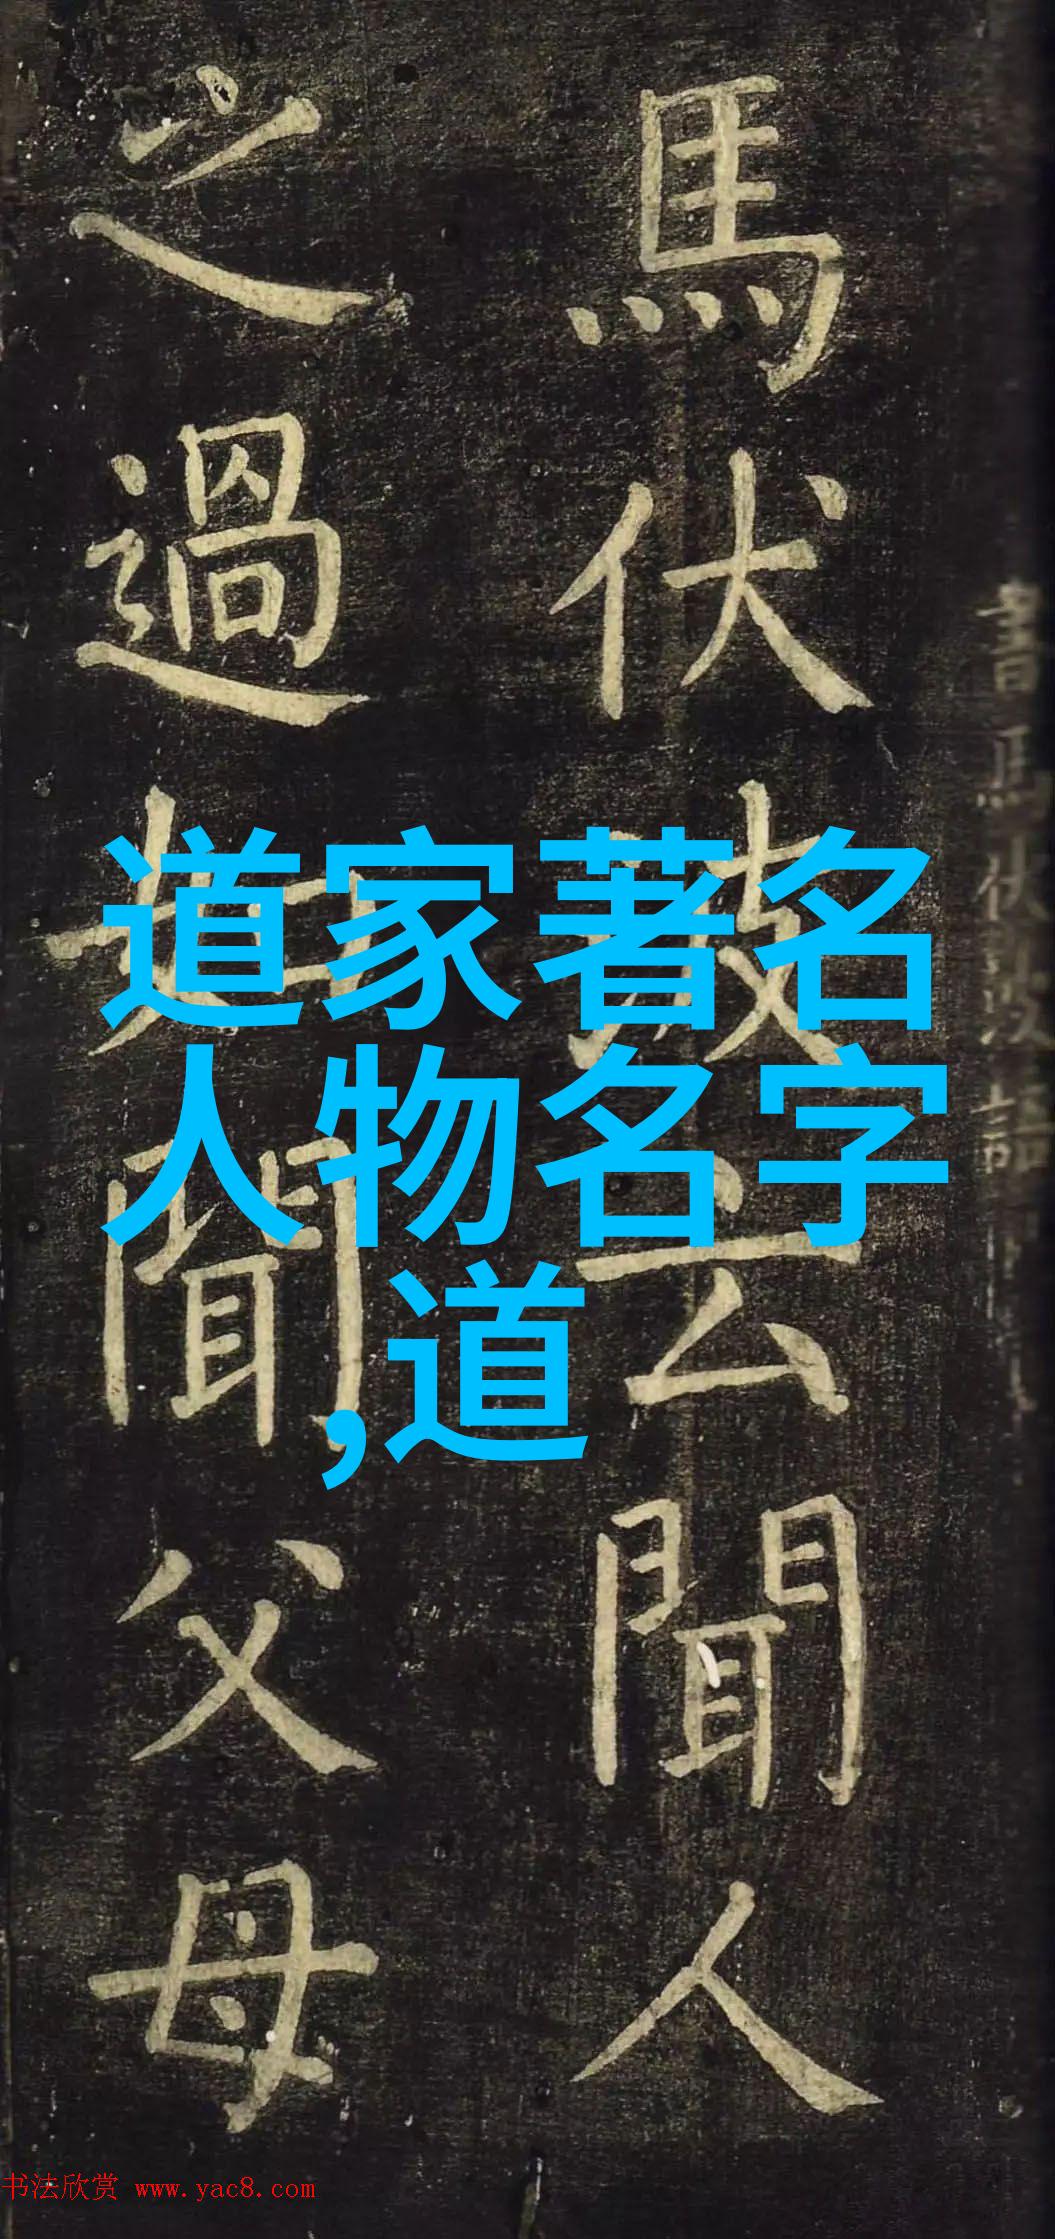 馬伏波云聞人
之過如聞父母
書馬伏波語
道家著名
人物名字
,道
书法欣赏 www.yac8.com